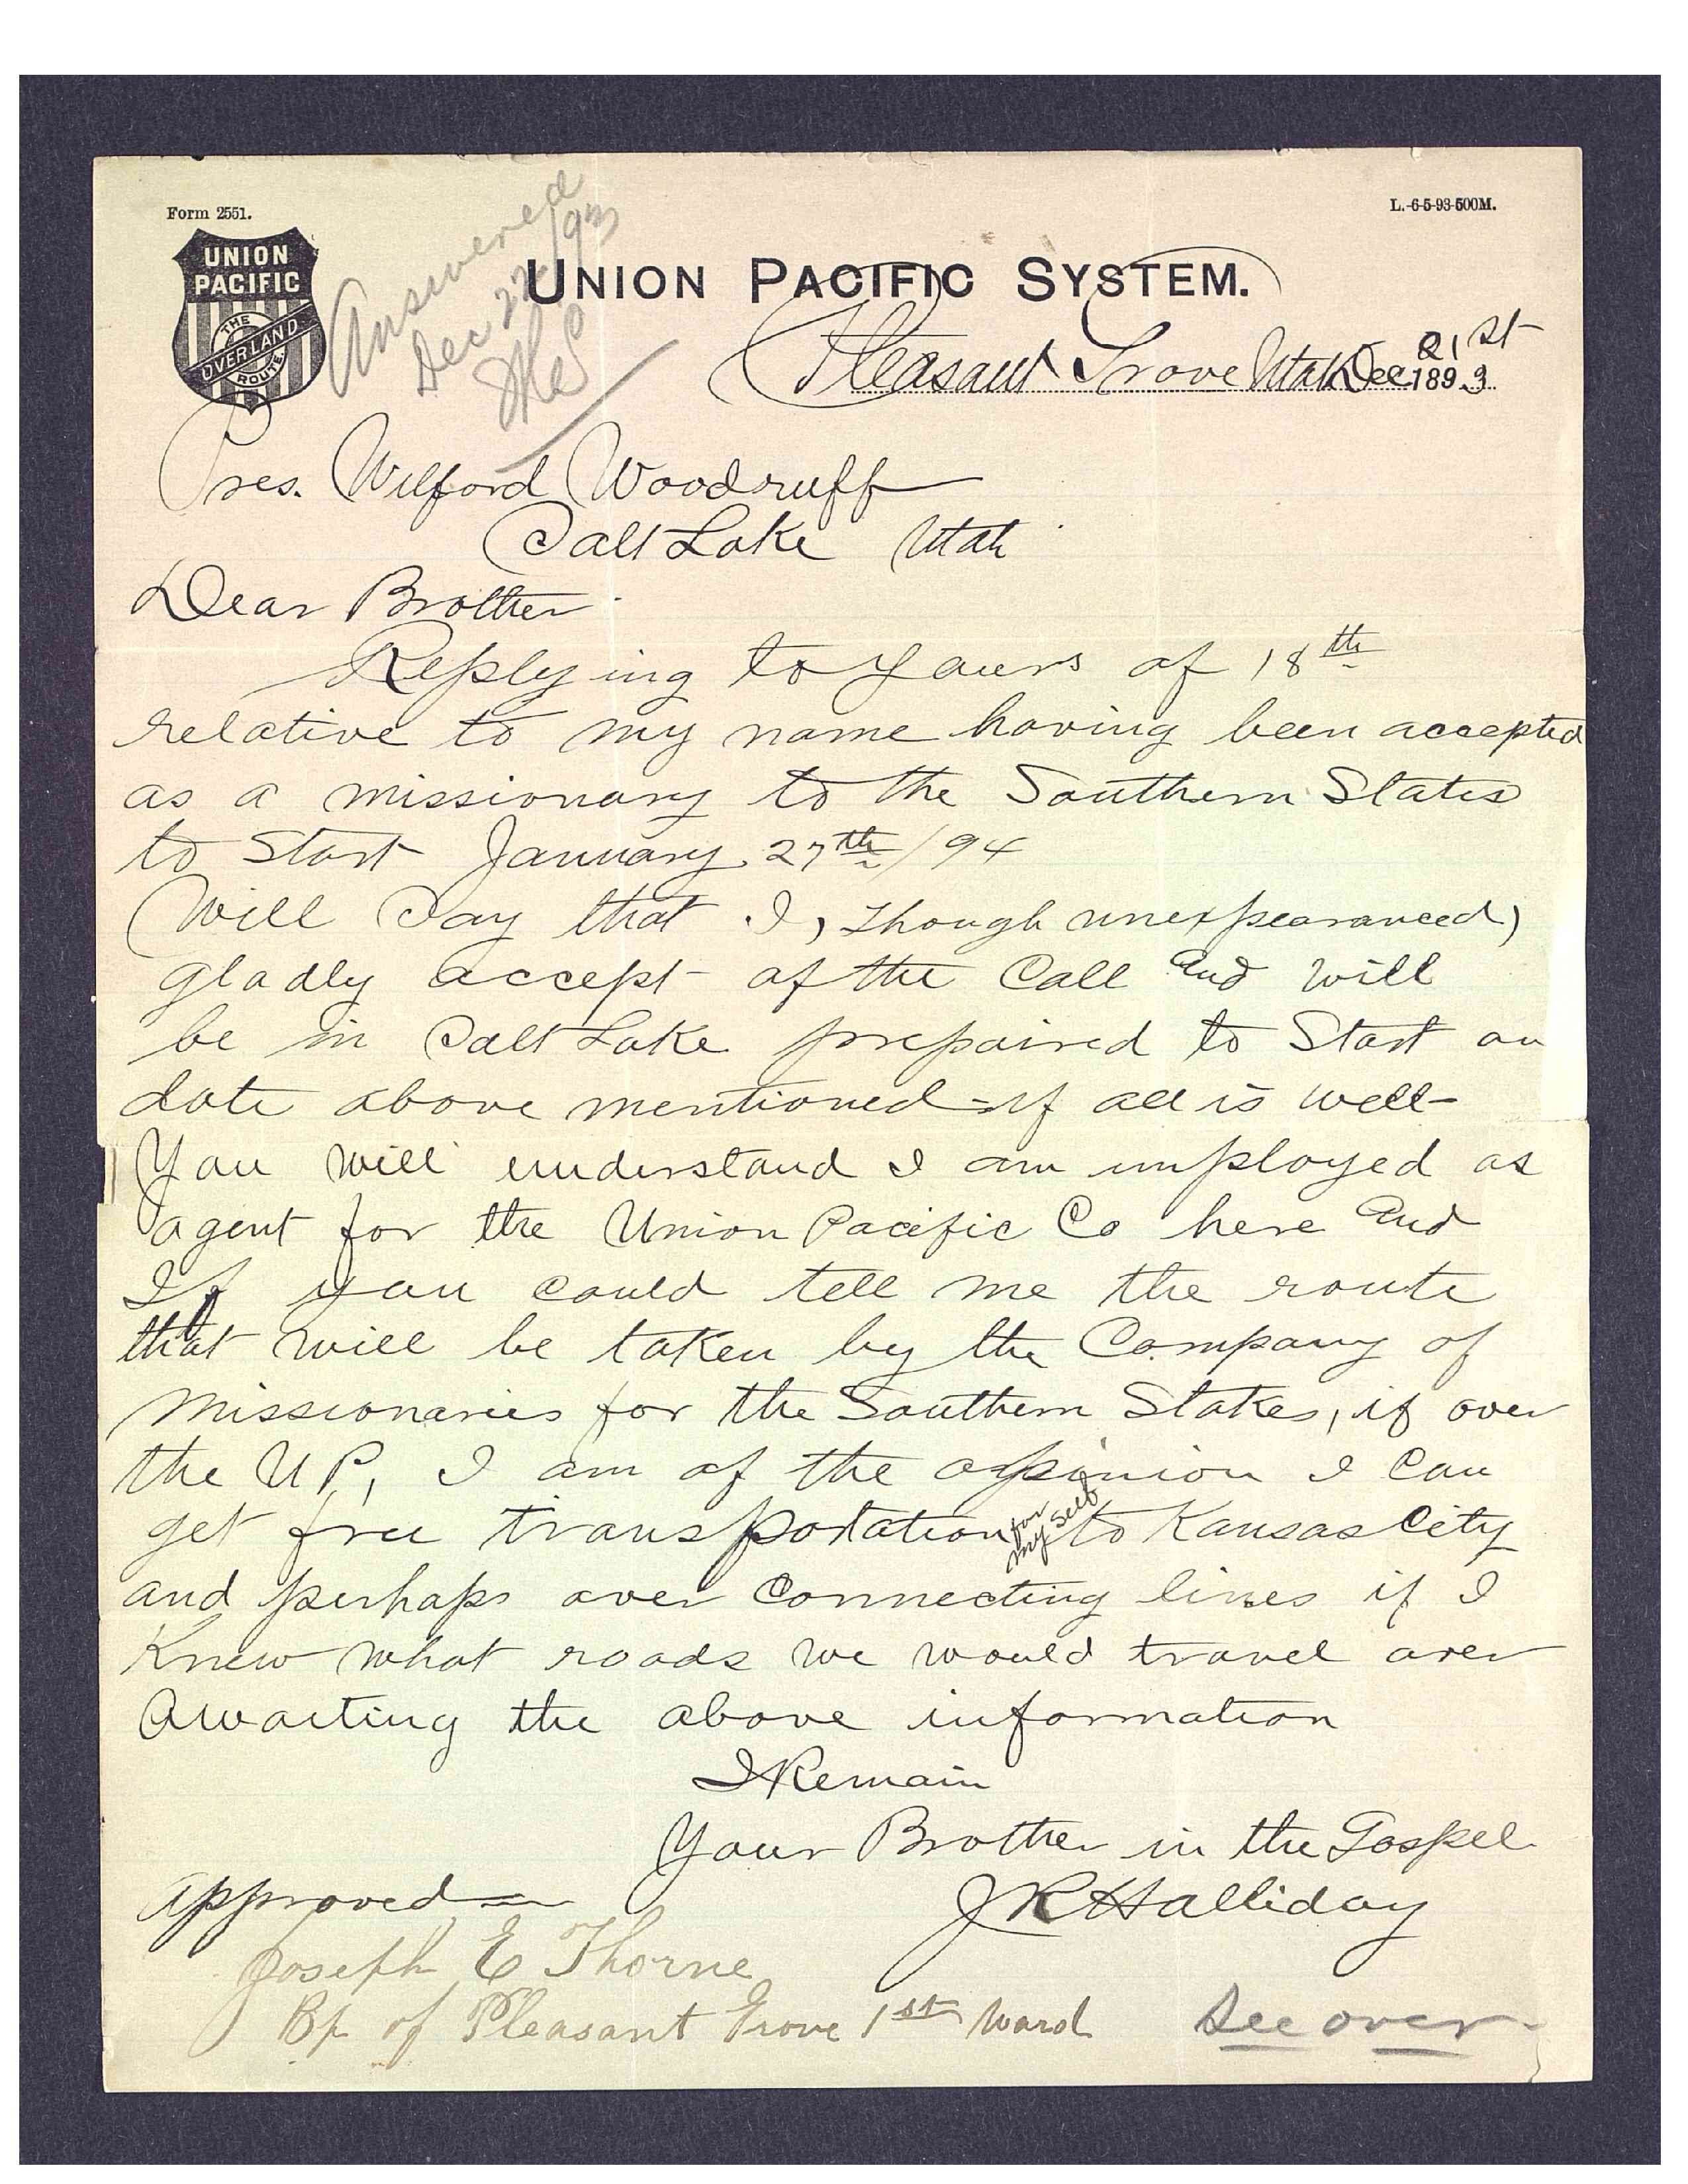 Form 2551.
L.-6-5-93-500M.
UNION
PACIFIC
THE
OVERLAND
ROUTE
Answered
Dec 22/93
UNION PACIFIC SYSTEM.
Pleasant Grove Utah Dec 21st 1893
Pres. Wilford Woodruff
Salt Lake Utah
Dear Brother
Replying to yours of 18th
relative to my name having been accepted
as a missionary to the Southern States
to Start January 27th/94
Will Say that I, though unexpearanced,
gladly accept of the Call and will
be in Salt Lake prepaired to Start on
date above mentioned - if all is well-
You will understand I am imployed as
agent for the Union Pacific Co here and
If you could tell me the route
that will be taken by the Company of
Missionaries for the Southern States, if over
the U P, I am of the oppinion I can
get free transportation for my self to Kansas City
and perhaps over Connecting lines if I
Knew what roads we would travel over
Awaiting the above information
I Remain
Your Brother in the Gospel
J R Halliday
approved
Joseph E Thorne
Bp of Pleasant Grove 1st Ward
See over